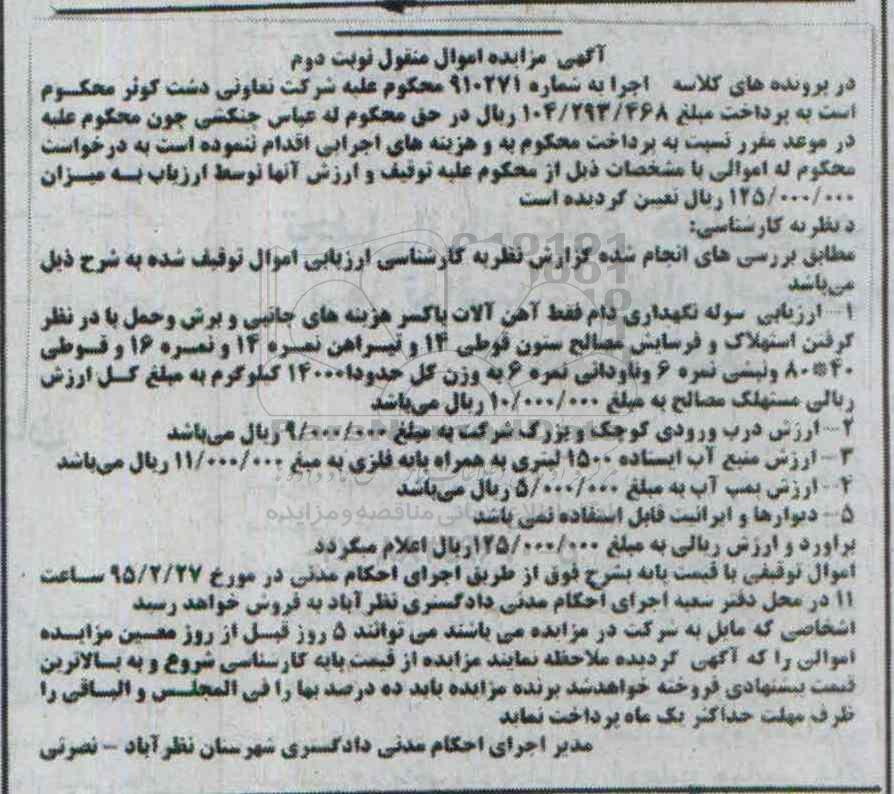 آگهی مزایده اموال منقول نوبت دوم
در پرونده های کلاسه اجرا به شماره ۹۱۰۲۷۱ محکوم علیه شرکت تعاونی دشت کوثر محکوم
است به پرداخت مبلغ ۱۰۴/۲۹۳/۴۶۸ ریال در حق محکوم له عباس جنکشی چون محکوم علیه
در موعد مقرر نسبت به پرداخت محکوم به و هزینه های اجرایی اقدام ننموده است به درخواست
محکوم له اموالی با مشخصات ذیل از محکوم علیه توقیف و ارزش آنها توسط ارزیاب به میزان
۱۲۵/۰۰۰/۰۰۰ ریال تعیین گردیده است
د نظریه کارشناسی:
مطابق بررسی های انجام شده گزارش نظریه کارشناسی ارزیابی اموال توقیف شده به شرح ذیل
می‌باشد
۱- ارزیابی سوله نگهداری دام فقط آهن آلات باکسر هزینه های جانبی و برش وحمل با در نظر
گرفتن استهلاک و فرسایش مصالح ستون قوطی ۱۴ و تیراهن نمره ۱۴ و نمره ۱۶ و قوطی
۴۰*۸۰ ونبشی نمره ۶ وناودانی نمره ۶ به وزن کل حدودا ۱۴۰۰۰ کیلوگرم به مبلغ کل ارزش
ریالی مستهلک مصالح به مبلغ ۱۰/۰۰۰/۰۰۰ ریال می‌باشد
۲- ارزش درب ورودی کوچک و بزرگ شرکت به مبلغ ۹/۰۰۰/۰۰۰ ریال می‌باشد
۳- ارزش منبع آب ایستاده ۱۵۰۰ لیتری به همراه پایه فلزی به مبلغ ۱۱/۰۰۰/۰۰۰ ریال می‌باشد
۴- ارزش پمپ آب به مبلغ ۵/۰۰۰/۰۰۰ ریال می‌باشد
۵- دیوارها و ایرانیت قابل استفاده نمی باشد
براورد و ارزش ریالی به مبلغ ۱۲۵/۰۰۰/۰۰۰ریال اعلام میگردد
اموال توقیفی با قیمت پایه بشرح فوق از طریق اجرای احکام مدنی در مورخ ۹۵/۲/۲۷ ساعت
۱۱ در محل دفتر شعبه اجرای احکام مدنی دادگستری نظر آباد به فروش خواهد رسید
اشخاصی که مایل به شرکت در مزایده می باشند می توانند ۵ روز قبل از روز معین مزایده
اموالی را که آگهی گردیده ملاحظه نمایند مزایده از قیمت پایه کارشناسی شروع و به بالاترین
قیمت پیشنهادی فروخته خواهدشد برنده مزایده باید ده درصد بها را فی المجلس و الباقی را
ظرف مهلت حداکثر یک ماه پرداخت نماید
مدیر اجرای احکام مدنی دادگستری شهرستان نظرآباد - نصرتی